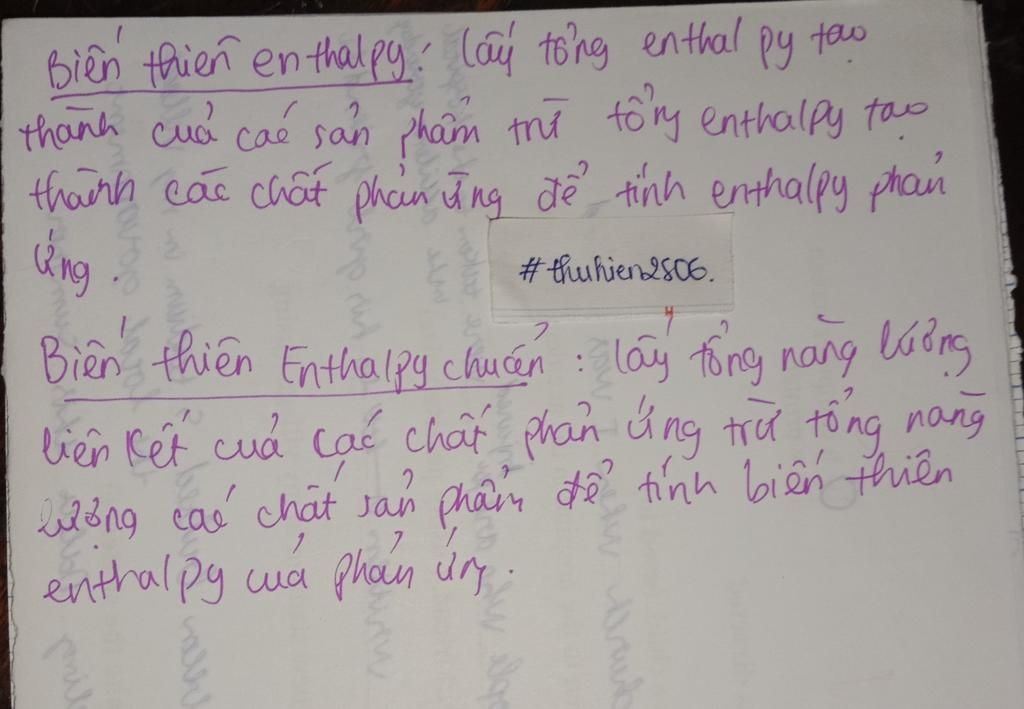 Biến thiên enthalpy: lấy tổng enthalpy tạo
thành của các sản phẩm trừ tổng enthalpy tạo
thành các chất phản ứng để tính enthalpy phản
ứng.
#thuhien2806.
Biến thiên Enthalpy chuẩn: lấy tổng năng lượng
liên kết của các chất phản ứng trừ tổng năng
lượng các chất sản phẩm để tính biến thiên
enthalpy của phản ứng.